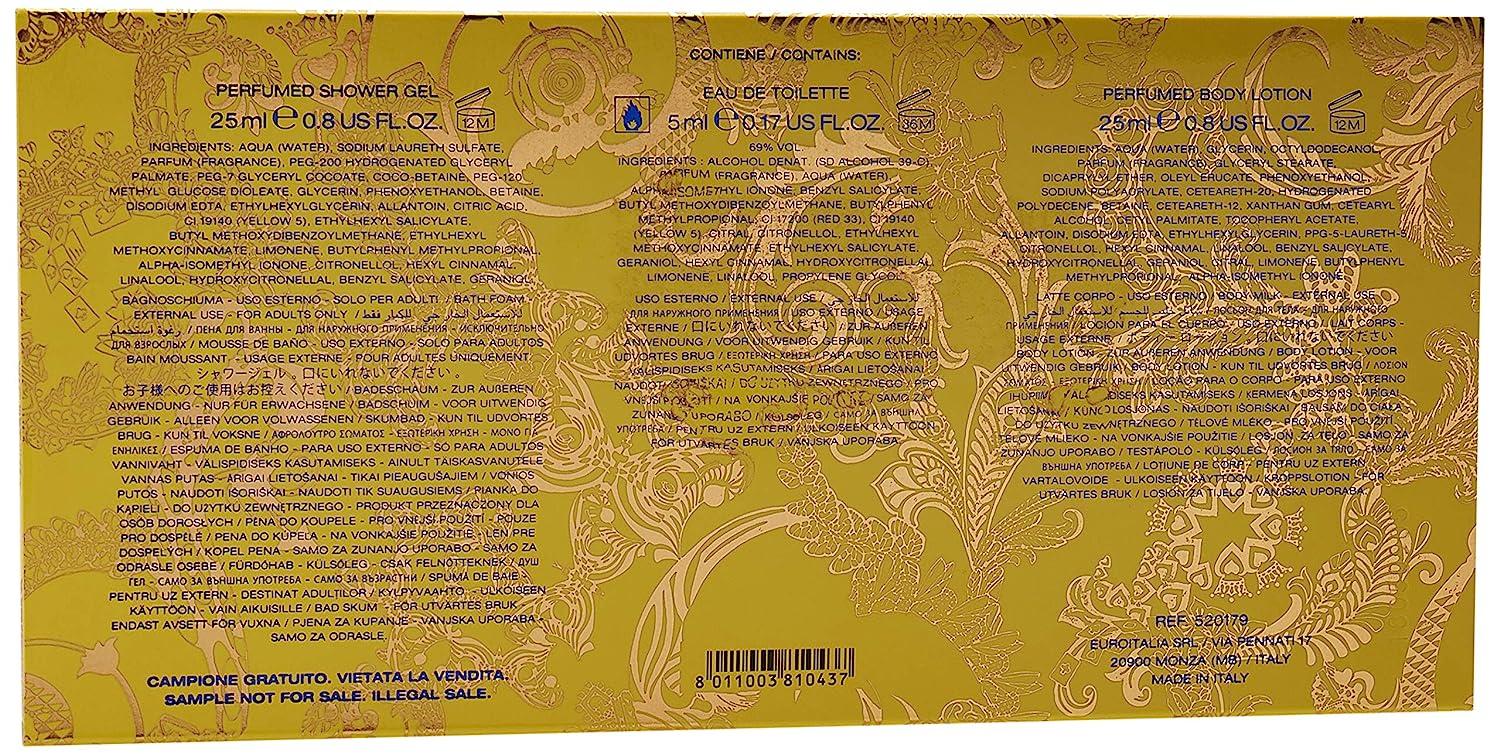 CONTIENE / CONTAINS:
PERFUMED SHOWER GEL
25ml ℮ 0.8 US FL.OZ. 12M
INGREDIENTS: AQUA (WATER), SODIUM LAURETH SULFATE,
PARFUM (FRAGRANCE), PEG-200 HYDROGENATED GLYCERYL
PALMATE, PEG-7 GLYCERYL COCOATE, COCO-BETAINE, PEG-120
METHYL GLUCOSE DIOLEATE, GLYCERIN, PHENOXYETHANOL, BETAINE,
DISODIUM EDTA, ETHYLHEXYLGLYCERIN, ALLANTOIN, CITRIC ACID,
CI 19140 (YELLOW 5), ETHYLHEXYL SALICYLATE,
BUTYL METHOXYDIBENZOYLMETHANE, ETHYLHEXYL
METHOXYCINNAMATE, LIMONENE, BUTYLPHENYL METHYLPROPIONAL,
ALPHA-ISOMETHYL IONONE, CITRONELLOL, HEXYL CINNAMAL,
LINALOOL, HYDROXYCITRONELLAL, BENZYL SALICYLATE, GERANIOL
BAGNOSCHIUMA - USO ESTERNO - SOLO PER ADULTI / BATH FOAM
EXTERNAL USE - FOR ADULTS ONLY / للاستعمال الخارجي - للكبار فقط
رغوة استحمام / ПЕНА ДЛЯ ВАННЫ - ДЛЯ НАРУЖНОГО ПРИМЕНЕНИЯ - ИСКЛЮЧИТЕЛЬНО
ДЛЯ ВЗРОСЛЫХ / MOUSSE DE BAÑO - USO EXTERNO - SOLO PARA ADULTOS
BAIN MOUSSANT - USAGE EXTERNE - POUR ADULTES UNIQUEMENT.
シャワージェル 。口にいれないでください 。
お子様へのご使用はお控えください / BADESCHAUM - ZUR AUßEREN
ANWENDUNG - NUR FÜR ERWACHSENE / BADSCHUIM - VOOR UITWENDIG
GEBRUIK - ALLEEN VOOR VOLWASSENEN / SKUMBAD - KUN TIL UDVORTES
BRUG - KUN TIL VOKSNE / ΑΦΡΟΛΟΥΤΡΟ ΣΩΜΑΤΟΣ - ΕΞΩΤΕΡΙΚΗ ΧΡΗΣΗ - ΜΟΝΟ ΓΙΑ
ΕΝΗΛΙΚΕΣ / ESPUMA DE BANHO - PARA USO EXTERNO - SÓ PARA ADULTOS
VANNIVAHT - VÄLISPIDISEKS KASUTAMISEKS - AINULT TÄISKASVANUTELE
VANNAS PUTAS - ĀRĪGAI LIETOŠANAI - TIKAI PIEAUGUŠAJIEM / VONIOS
PUTOS - NAUDOTI IŠORIŠKAI - NAUDOTI TIK SUAUGUSIEMS / PIANKA DO
KĄPIELI - DO UŻYTKU ZEWNĘTRZNEGO - PRODUKT PRZEZNACZONY DLA
OSÓB DOROSŁYCH / PĚNA DO KOUPELE - PRO VNĚJŠÍ POUŽITÍ - POUZE
PRO DOSPĚLÉ / PENA DO KÚPEĽA - NA VONKAJŠIE POUŽITIE - LEN PRE
DOSPELÝCH / KOPEL PENA - SAMO ZA ZUNANJO UPORABO - SAMO ZA
ODRASLE OSEBE / FÜRDŐHAB - KÜLSŐLEG - CSAK FELNŐTTEKNEK / ДУШ
ГЕЛ - САМО ЗА ВЪНШНА УПОТРЕБА - САМО ЗА ВЪЗРАСТНИ / SPUMĂ DE BAIE -
PENTRU UZ EXTERN - DESTINAT ADULȚILOR / KYLPYVAAHTO - ULKOISEEN
KÄYTTÖÖN - VAIN AIKUISILLE / BAD SKUM - FÖR UTVÄRTES BRUK -
ENDAST AVSETT FÖR VUXNA / PJENA ZA KUPANJE - VANJSKA UPORABA -
SAMO ZA ODRASLE.
CAMPIONE GRATUITO. VIETATA LA VENDITA.
SAMPLE NOT FOR SALE. ILLEGAL SALE.
EAU DE TOILETTE
5ml ℮ 0.17 US FL.OZ. 36M
69% VOL
INGREDIENTS : ALCOHOL DENAT. (SD ALCOHOL 39-C),
PARFUM (FRAGRANCE), AQUA (WATER),
ALPHA-ISOMETHYL IONONE, BENZYL SALICYLATE,
BUTYL METHOXYDIBENZOYLMETHANE, BUTYLPHENYL
METHYLPROPIONAL, CI 17200 (RED 33), CI 19140
(YELLOW 5), CITRAL, CITRONELLOL, ETHYLHEXYL
METHOXYCINNAMATE, ETHYLHEXYL SALICYLATE,
GERANIOL, HEXYL CINNAMAL, HYDROXYCITRONELLAL
LIMONENE, LINALOOL, PROPYLENE GLYCOL
USO ESTERNO / EXTERNAL USE / للاستعمال الخارجي
ДЛЯ НАРУЖНОГО ПРИМЕНЕНИЯ / USO EXTERNO / USAGE
EXTERNE / 口にいれないでください / ZUR AUßEREN
ANWENDUNG / VOOR UITWENDIG GEBRUIK / KUN TIL
UDVORTES BRUG / ΕΞΩΤΕΡΙΚΗ ΧΡΗΣΗ / PARA USO EXTERNO
VÄLISPIDISEKS KASUTAMISEKS / ĀRĪGAI LIETOŠANAI
NAUDOTI IŠORIŠKAI / DO UŻYTKU ZEWNĘTRZNEGO / PRO
VNĚJŠÍ POUŽITÍ / NA VONKAJŠIE POUŽITIE / SAMO ZA
ZUNANJO UPORABO / KÜLSŐLEG / САМО ЗА ВЪНШНА
УПОТРЕБА / PENTRU UZ EXTERN / ULKOISEEN KÄYTTÖÖN
FÖR UTVÄRTES BRUK / VANJSKA UPORABA
8 011003 810437
PERFUMED BODY LOTION
25ml ℮ 0.8 US FL.OZ. 12M
INGREDIENTS: AQUA (WATER), GLYCERIN, OCTYLDODECANOL
PARFUM (FRAGRANCE), GLYCERYL STEARATE,
DICAPRYLYL ETHER, OLEYL ERUCATE, PHENOXYETHANOL,
SODIUM POLYACRYLATE, CETEARETH-20, HYDROGENATED
POLYDECENE, BETAINE, CETEARETH-12, XANTHAN GUM, CETEARYL
ALCOHOL, CETYL PALMITATE, TOCOPHERYL ACETATE,
ALLANTOIN, DISODIUM EDTA, ETHYLHEXYLGLYCERIN, PPG-5-LAURETH-5
CITRONELLOL, HEXYL CINNAMAL, LINALOOL, BENZYL SALICYLATE,
HYDROXYCITRONELLAL, GERANIOL, CITRAL, LIMONENE, BUTYLPHENYL
METHYLPROPIONAL, ALPHA-ISOMETHYL IONONE
LATTE CORPO - USO ESTERNO / BODY MILK - EXTERNAL USE
ЛОСЬОН ДЛЯ ТЕЛА - ДЛЯ НАРУЖНОГО
ПРИМЕНЕНИЯ / LOCIÓN PARA EL CUERPO - USO EXTERNO / LAIT CORPS -
USAGE EXTERNE / ボディローション 。口にいれないでください
BODY LOTION - ZUR AUßEREN ANWENDUNG / BODY LOTION - VOOR
UITWENDIG GEBRUIK / BODY LOTION - KUN TIL UDVORTES BRUG / ΛΟΣΙΟΝ
ΕΞΩΤΕΡΙΚΗ ΧΡΗΣΗ / LOCÃO PARA O CORPO - PARA USO EXTERNO
KASUTAMISEKS / ĶERMEŅA LOSJONS - ĀRĪGAI
LIETOŠANAI / KŪNO LOSJONAS - NAUDOTI IŠORIŠKAI / BALSAM DO CIAŁA
DO UŻYTKU ZEWNĘTRZNEGO / TĚLOVÉ MLÉKO - PRO VNĚJŠÍ POUŽITÍ
TELOVÉ MLIEKO - NA VONKAJŠIE POUŽITIE / LOSJON ZA TELO - SAMO ZA
ZUNANJO UPORABO / TESTÁPOLÓ - KÜLSŐLEG / ЛОСИОН ЗА ТЯЛО - САМО ЗА
ВЪНШНА УПОТРЕБА / LOȚIUNE DE CORP - PENTRU UZ EXTERN
VARTALOVOIDE - ULKOISEEN KÄYTTÖÖN / KROPPSLOTION - FÖR
UTVÄRTES BRUK / LOSION ZA TIJELO - VANJSKA UPORABA.
REF. 520179
EUROITALIA SRL / VIA PENNATI 17
20900 MONZA (MB) / ITALY
MADE IN ITALY